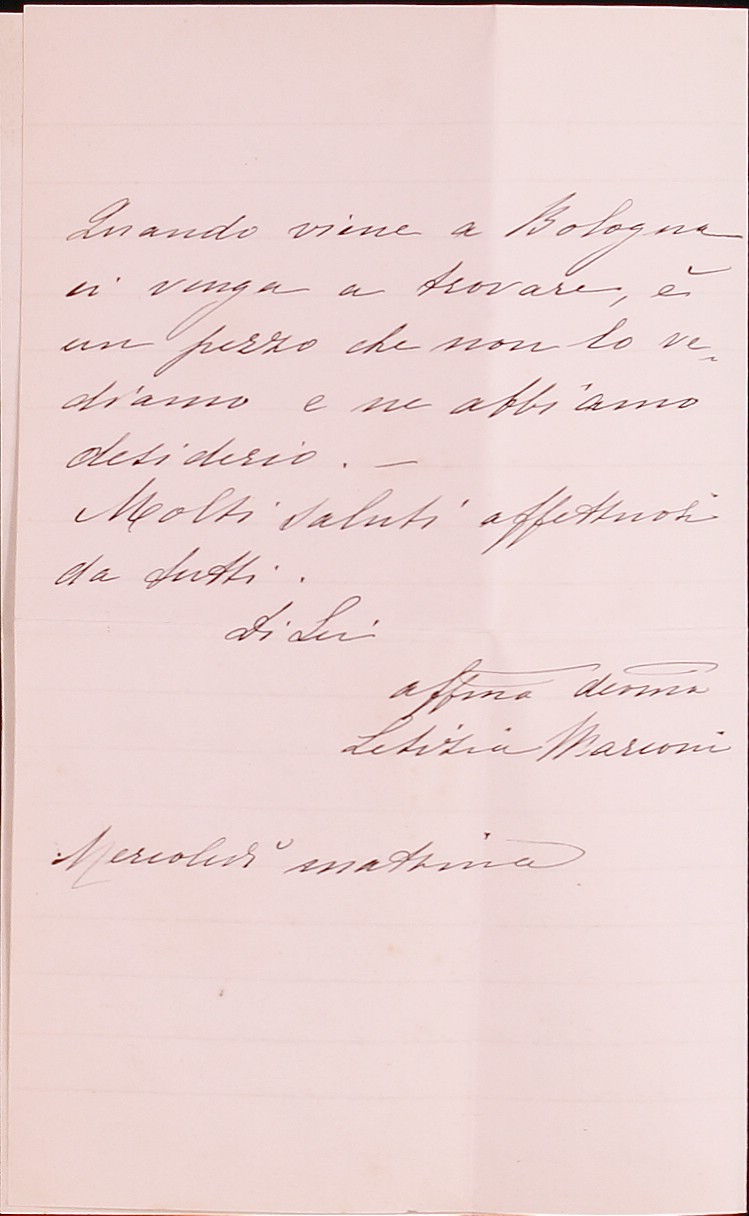 Quando viene a Bologna
ci venga a trovare, è
un pezzo che non lo ve-
diamo e ne abbiamo
desiderio. —
Molti saluti affettuosi
da tutti.
Di Lei
affma devma
Letizia Marconi
Mercoledì mattina